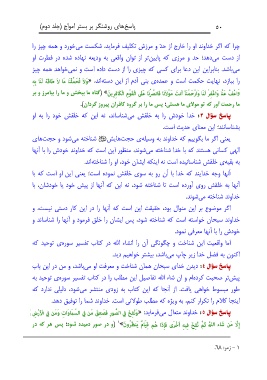 ۵۰ پاسخ‌های روشنگر بر بستر امواج (جلد دوم)
چرا که اگر خداوند او را خارج از حدّ و مرزش تکلیف فرماید، شکست می‌خورد و همه چیز را
از دست می‌دهد؛ حد و مرزی که پایین‌تر از توان واقعی به ودیعه نهاده شده در فطرت او
می‌باشد. بنابراین این دعا برای کسی که چیزی را از دست داده است و نمی‌خواهد همه چیز
را ببازد، نهایت حکمت است و عمده‌ی بنی آدم از این دسته‌اند: «وَلاَ تُحَمِّلْنَا مَا لاَ طَاقَةَ لَنَا بِهِ
وَاعْفُ عَنَّا وَاغْفِرْ لَنَا وَارْحَمْنَا أَنتَ مَوْلاَنَا فَانصُرْنَا عَلَى الْقَوْمِ الْكَافِرِينَ» (گناه ما ببخش و ما را بیامرز و بر
ما رحمت آور که تو مولای ما هستی؛ پس ما را بر گروه کافران پیروز گردان).
پاسخ سؤال ۳: خدا خودش را به خلقش می‌شناساند نه این که خلقش خود را به او
بشناسانند؛ این معنای حدیث است.
یعنی اگر ما بگوییم که خداوند به وسیله‌ی حجت‌هایش شناخته می‌شود و حجت‌های
الهی کسانی هستند که با خدا شناخته می‌شوند، منظور این است که خداوند خودش را با آنها
به بقیه‌ی خلقش شناسانیده است نه اینکه ایشان خود، او را شناخته‌اند.
آنها وجه خدایند که خدا با آن رو به سوی خلقش نموده است؛ یعنی این او است که با
آنها به خلقش روی آورده است تا شناخته شود، نه این که آنها از پیش خود با خودشان، با
خداوند شناخته می‌شوند.
اگر موضوع بر این منوال بود، حقیقت این است که آنها را در این کار دستی نیست، و
خداوند سبحان خواسته است که شناخته شود، پس ایشان را خلق فرمود و آنها را شناساند و
خودش را با آنها معرفی نمود.
اما واقعیت این شناخت و چگونگی آن را انشاء الله در کتاب تفسیر سوره‌ی توحید که
اکنون به فضل خدا زیر چاپ می‌باشد، بیشتر خواهیم دید.
پاسخ سؤال ۴: دیدن خدای سبحان همان شناخت و معرفت او می‌باشد، و من در این باب
پیش‌تر صحبت کرده‌ام و ان شاء الله تفاصیل این مطلب را در کتاب تفسیر سوره‌ی توحید به
طور مبسوط خواهی یافت. از آنجا که این کتاب به زودی منتشر می‌شود، دلیلی ندارد که
اینجا کلام را تکرار کنم، به ویژه که مطلب طولانی است. خداوند شما را توفیق دهد.
پاسخ سؤال ۵: خداوند متعال می‌فرماید: «وَنُفِخَ فِي الصُّورِ فَصَعِقَ مَن فِي السَّمَاوَاتِ وَمَن فِي الْأَرْضِ
إِلَّا مَن شَاءَ اللَّهُ ثُمَّ نُفِخَ فِيهِ أُخْرَى فَإِذَا هُم قِيَامٌ يَنظُرُونَ»¹ (و در صور دمیده شود؛ پس هر که در
۱ – زمر: ۶۸.